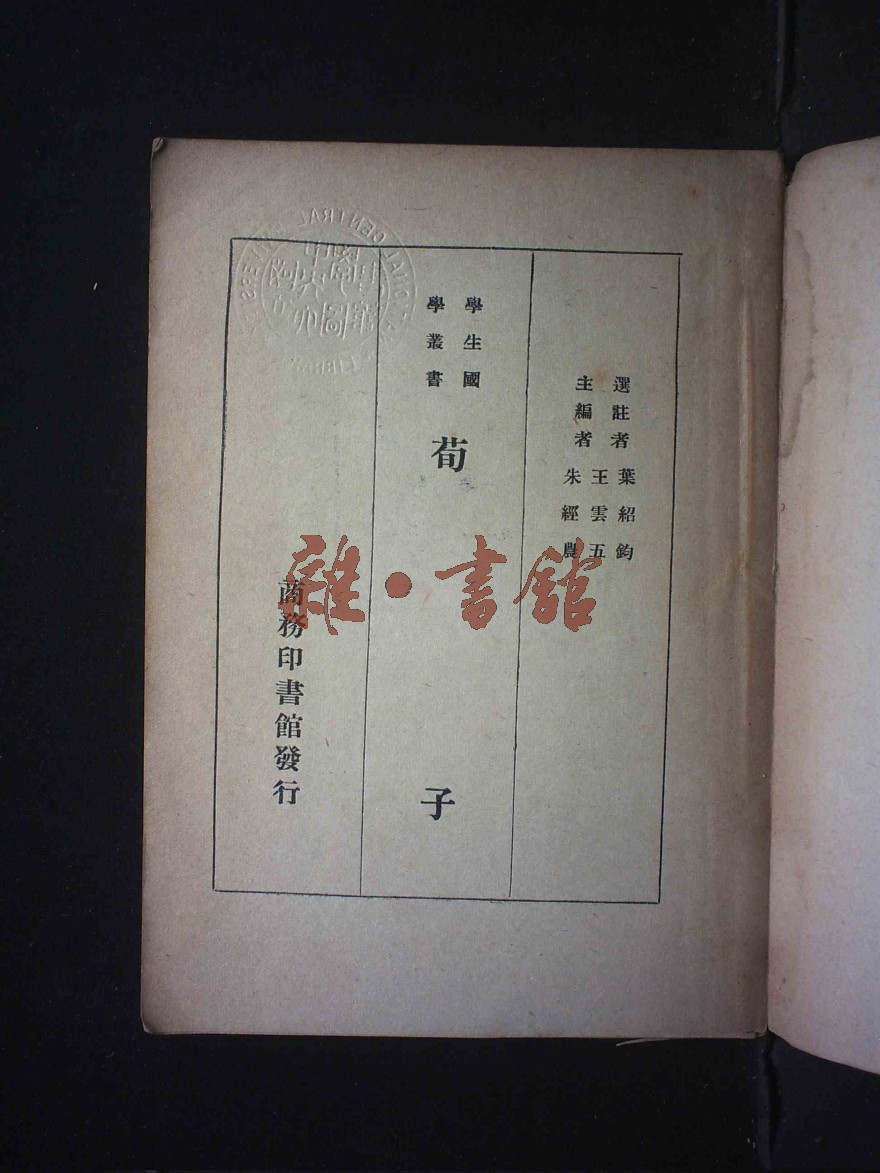 選註者 葉紹鈞
主編者 王雲五
朱經農
學生國
學叢書
荀子
商務印書館發行
雜·書館